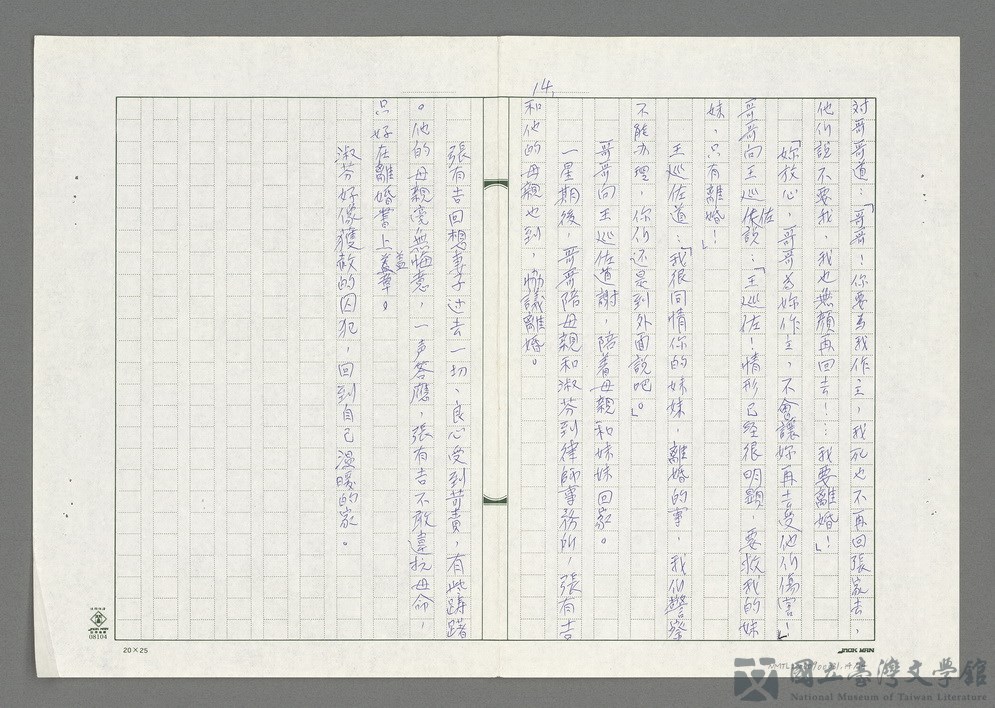 14.
対哥哥道：「哥哥！你要為我作主，我死也不再回張家去，
他们說不要我，我也無顏再回去！…我要離婚！」
「妳放心，哥哥為妳作主，不會讓妳再去受他们傷害！」
哥哥向王巡佐說：「王巡佐！情形已経很明顕，要救我的妹
妹，只有離婚！」
王巡佐道：「我很同情你的妹妹，離婚的事，我们警察
不能办理，你们还是到外面說吧。」
哥哥向王巡佐道謝，陪着母親和妹妹回家。
一星期後，哥哥陪母親和淑芬到律師事務所，張有吉
和他的母親也到，協議離婚。
張有吉回想妻子过去一切、良心受到苛責，有些躊躇
。他的母親毫無悔意，一声答應，張有吉不敢違抗母命，
只好在離婚書上蓋章。
淑芬好像獲赦的囚犯，回到自己温暖的家。
20×25
JACK MAN
08104
國立臺灣文學館
National Museum of Taiwan Literature